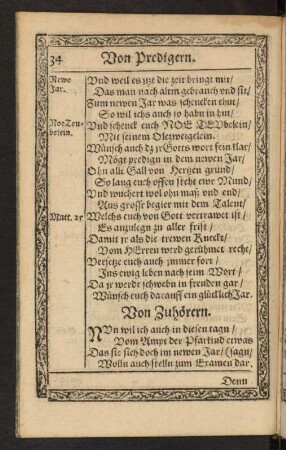 34 Von Predigern.
Newe Jar.
Vnd weil es ytzt die zeit bringt mit/
Das man nach altem gebrauch vnd sit/
Zum newen Jar was schencken thut/
So wil ichs auch jo habn in hut/
Noe Teu-
belein.
Vnd schenck euch NOE TEVbelein/
Mit seinem Olezweigelein.
Wünsch auch dz jr Gotts wort fein klar/
Mögt predign in dem newen Jar/
Ohn alle Gall von Hertzen grund/
So lang euch offen steht ewr Mund/
Vnd wuchert wol ohn maß vnd end/
Aus grosser begier mit dem Talent/
Matt. 25
Welchs euch von Gott vertrawet ist/
Es anzulegn zu aller frist/
Damit jr als die trewen Knecht/
Vom HErren werd gerühmet recht/
Versetze euch auch jmmer fort/
Ins ewig leben nach seim Wort/
Da jr werdt schwebn in freuden gar/
Wünsch euch darauff ein glücklich Jar.
Von Zuhörern.
NVn wil ich auch in diesen tagn/
Vom Ampt der Pfarkind etwas
Das sie sich doch im newen Jar/ (sagn/
Wolln auch stelln zum Examen dar.
Denn